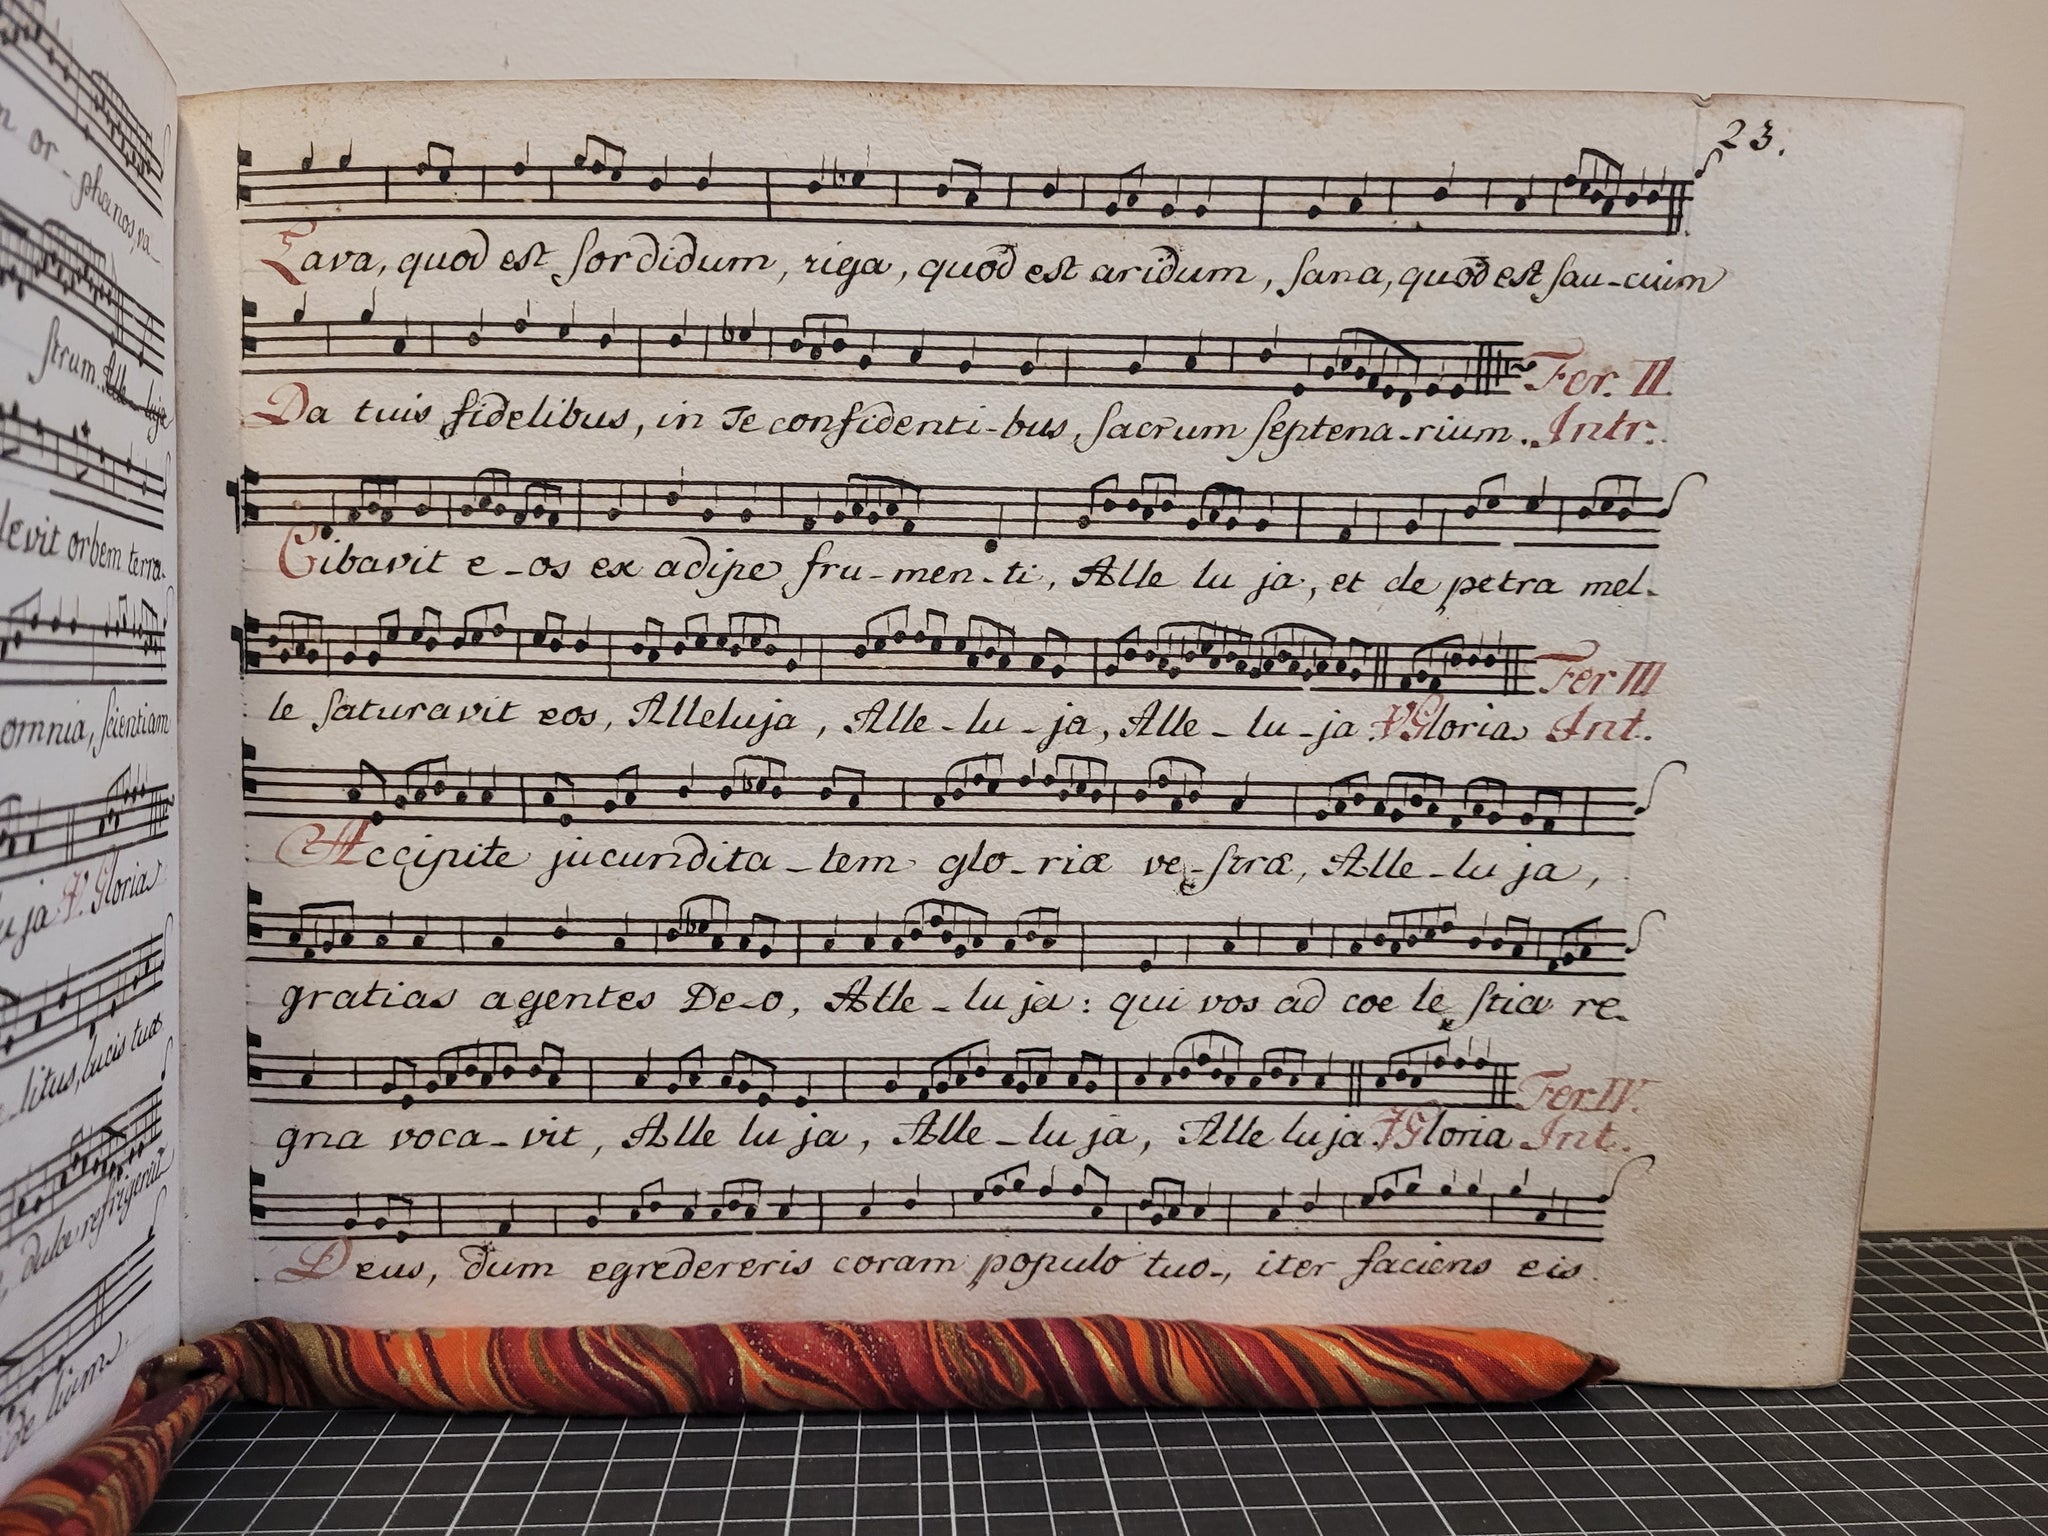 n or-phanos, va-
strum. Alle-luja
levit orbem terra-
omnia, scientiam
luja ℣. Gloria
-litus, lucis tuæ
dulce refrigeriū
23.
Lava, quod est sordidum, riga, quod est aridum, sana, quod est sau-cium
Da tuis fidelibus, in Te confidenti-bus, sacrum septena-rium. Fer. II. Intr.
Cibavit e-os ex adipe fru-men-ti, Alle lu ja, et de petra mel-
le saturavit eos, Alleluja, Alle-lu-ja, Alle-lu-ja. ℣ Gloria Fer III Int.
Accipite jucundita-tem glo-riæ ve-stræ, Alle-lu ja,
gratias agentes De-o, Alle-lu ja: qui vos ad coe le stia re-
gna voca-vit, Alle lu ja, Alle-lu ja, Alle luja ℣ Gloria Fer IV. Int.
Deus, dum egredereris coram populo tuo-, iter faciens eis